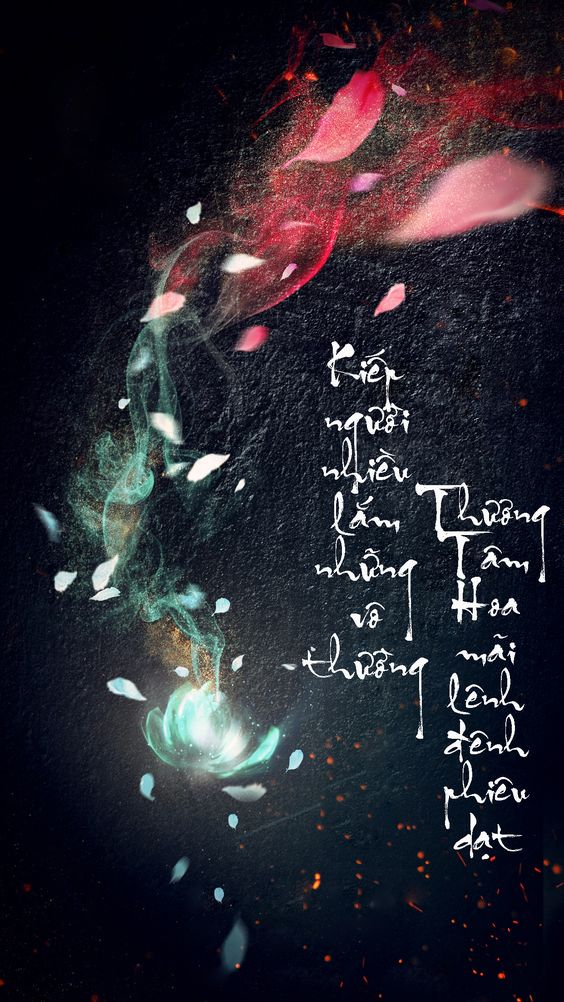 Kiếp
người
nhiều
lắm
những
vô
thường
Thương
Tâm
Hoa
mãi
lênh
đênh
phiêu
dạt